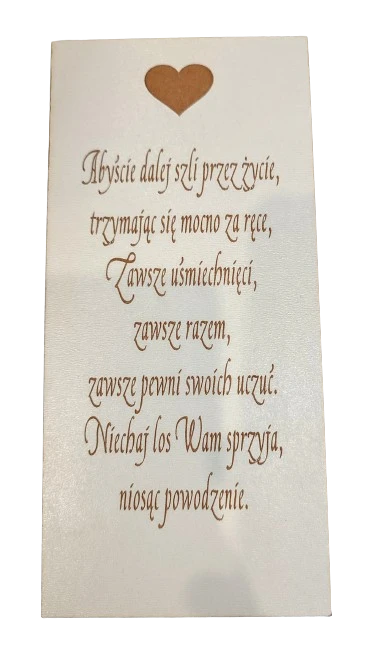 Abyście dalej szli przez życie,
trzymając się mocno za ręce,
Zawsze uśmiechnięci,
zawsze razem,
zawsze pewni swoich uczuć.
Niechaj los Wam sprzyja,
niosąc powodzenie.